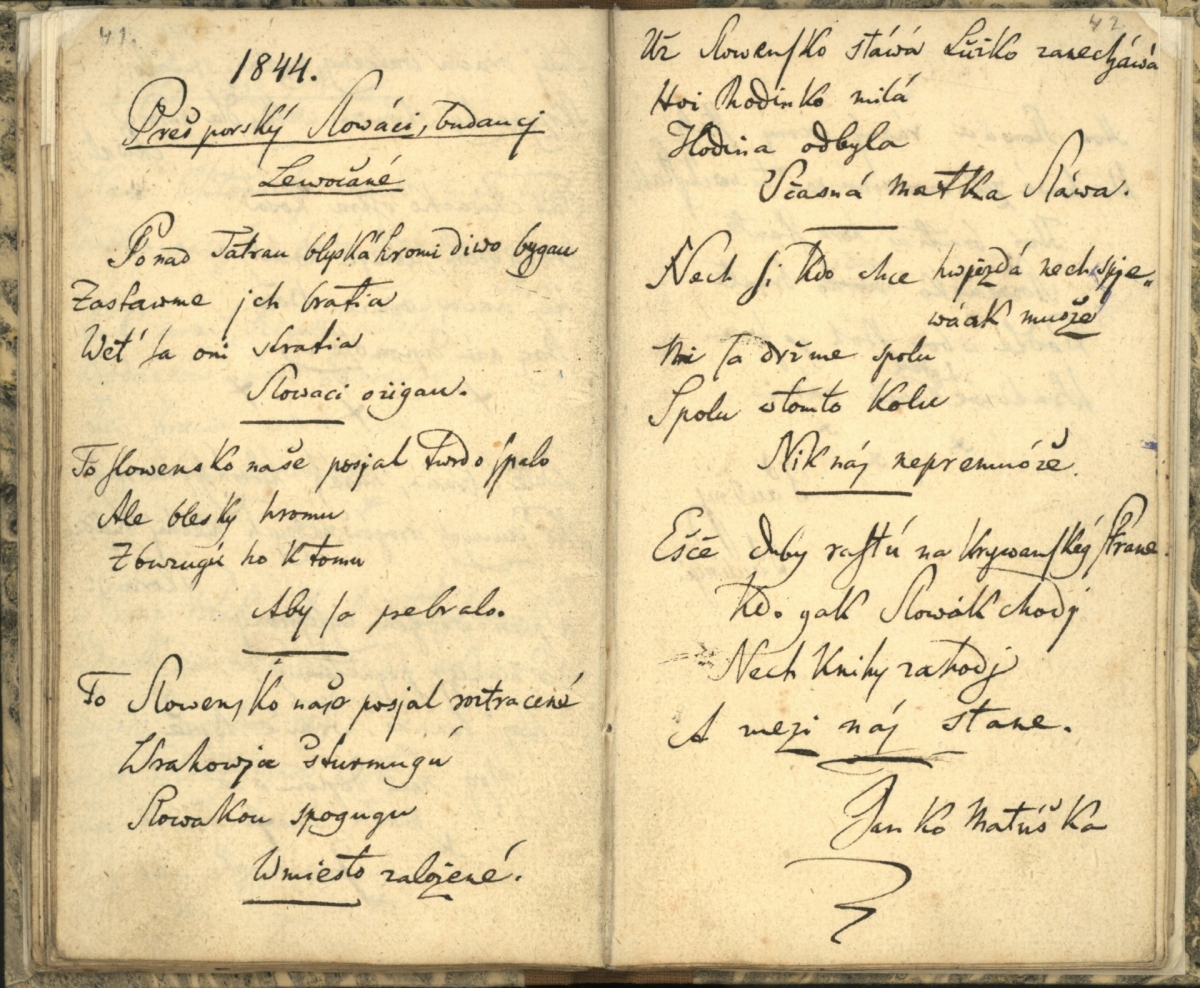 41.
1844.
Prešporský Slowáci, budaucj
Lewočané
Ponad Tatrau blyská hromi diwo bygau
Zastawme jch bratia
Weť sa oni stratia
Slowaci ožigau.
To slowensko naše posjal twrdo spalo
Ale blesky hromu
Zbuzugú ho k tomu
Aby sa prebralo.
To Slowensko naše posjal roztracené
Wrahowja šturmugú
Slowákou spogugu
Wmiesto založené.
42
Už Slowensko stáwá Lúžko zanecháwá
Hoi Rodinko milá
Hodina odbyla
Včasná matka Sláwa.
Nech si kdo chce hwjezdá nech spje„
wáak muože
Mi sa držme spolu
Spolu wtomto kolu
Nik nás nepremuóže.
Ešče duby rastú na krywanskég strane.
Kdo gak Slowák chodj
Nech knihy zahodj
A mezi nás stane.
Janko Matúška